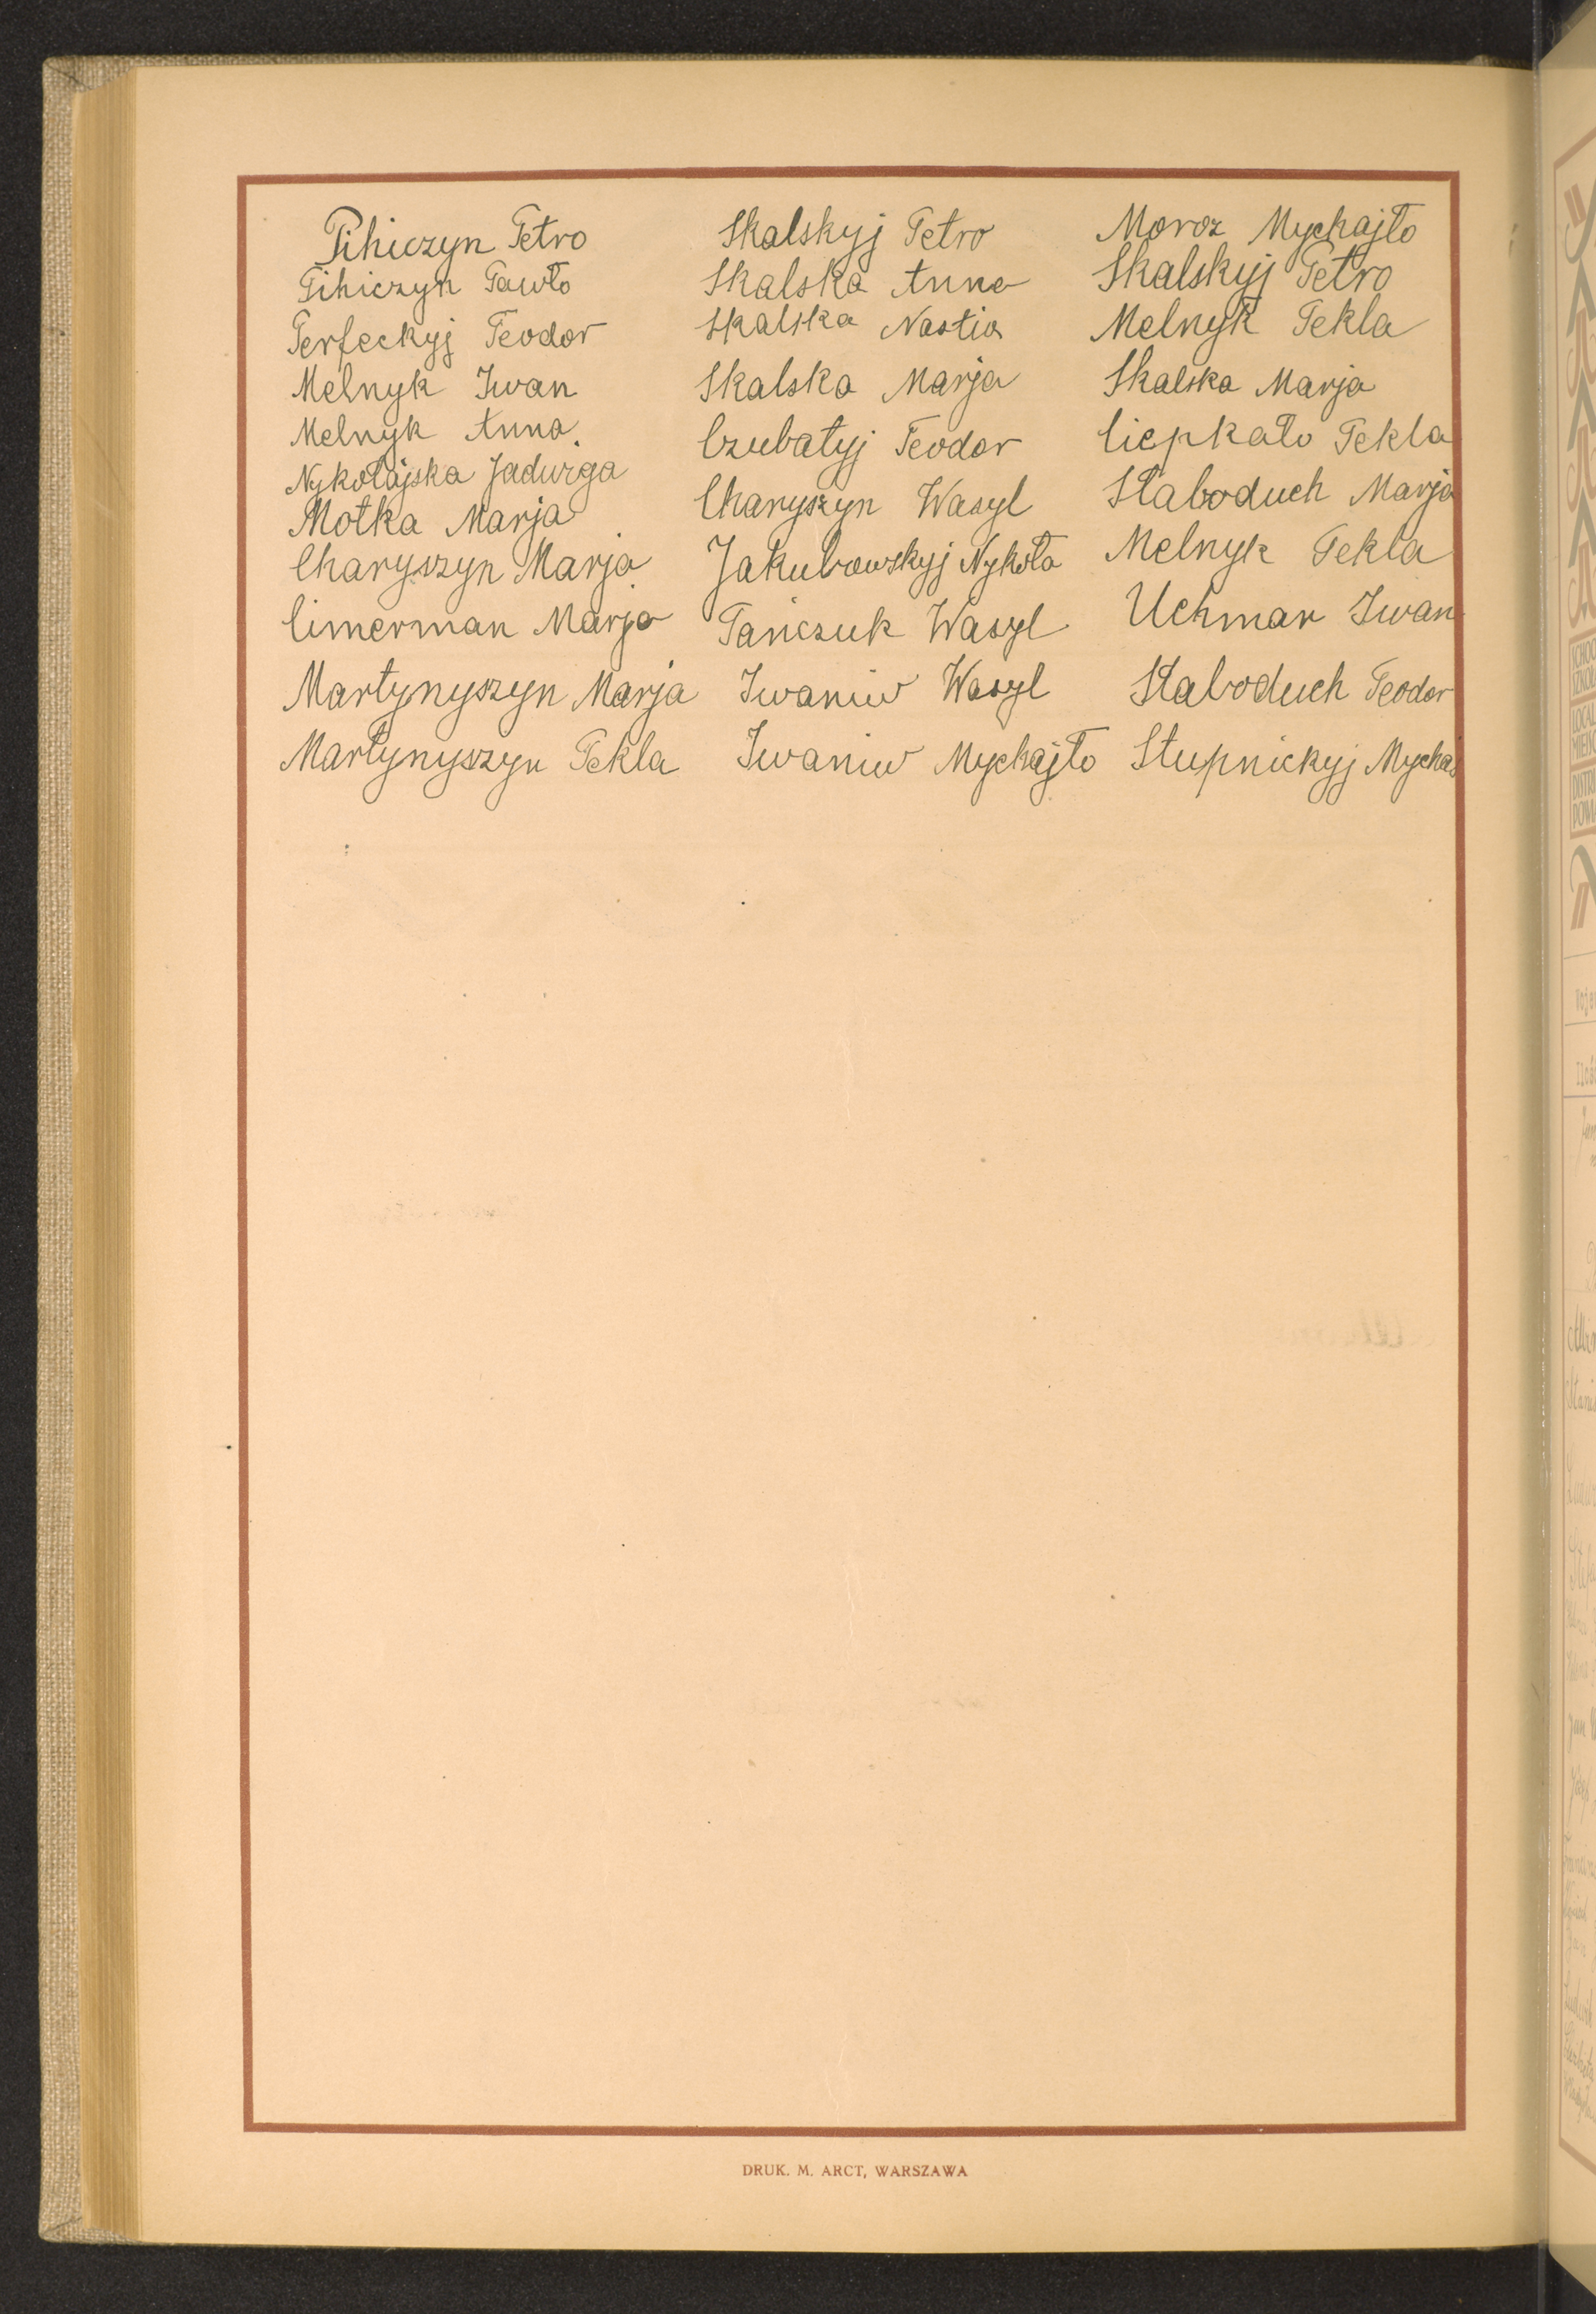 Pihiczyn Petro
Pihiczyn Pawło
Perfeckyj Teodor
Melnyk Iwan
Melnyk Anna.
Nykołajska Jadwrga
Motka Marja
Charyszyn Marja
Cimerman Marja
Martynyszyn Marja
Martynyszyn Tekla
Skalskyj Petro
Skalska Anna
Skalska Nastia
Skalska Marja
Czubatyj Teodor
Charyszyn Wasyl
Jakubowskyj Nykoła
Pańczuk Wasyl
Iwaniw Wasyl
Iwaniw Mychajło
Moroz Mychajło
Skalskyj Petro
Melnyk Tekla
Skalska Marja
Ciepkało Tekla
Słaboduch Marja
Melnyk Tekla
Uchman Iwan
Słaboduch Teodor
Stupnickyj Mychaj
DRUK. M. ARCT, WARSZAWA